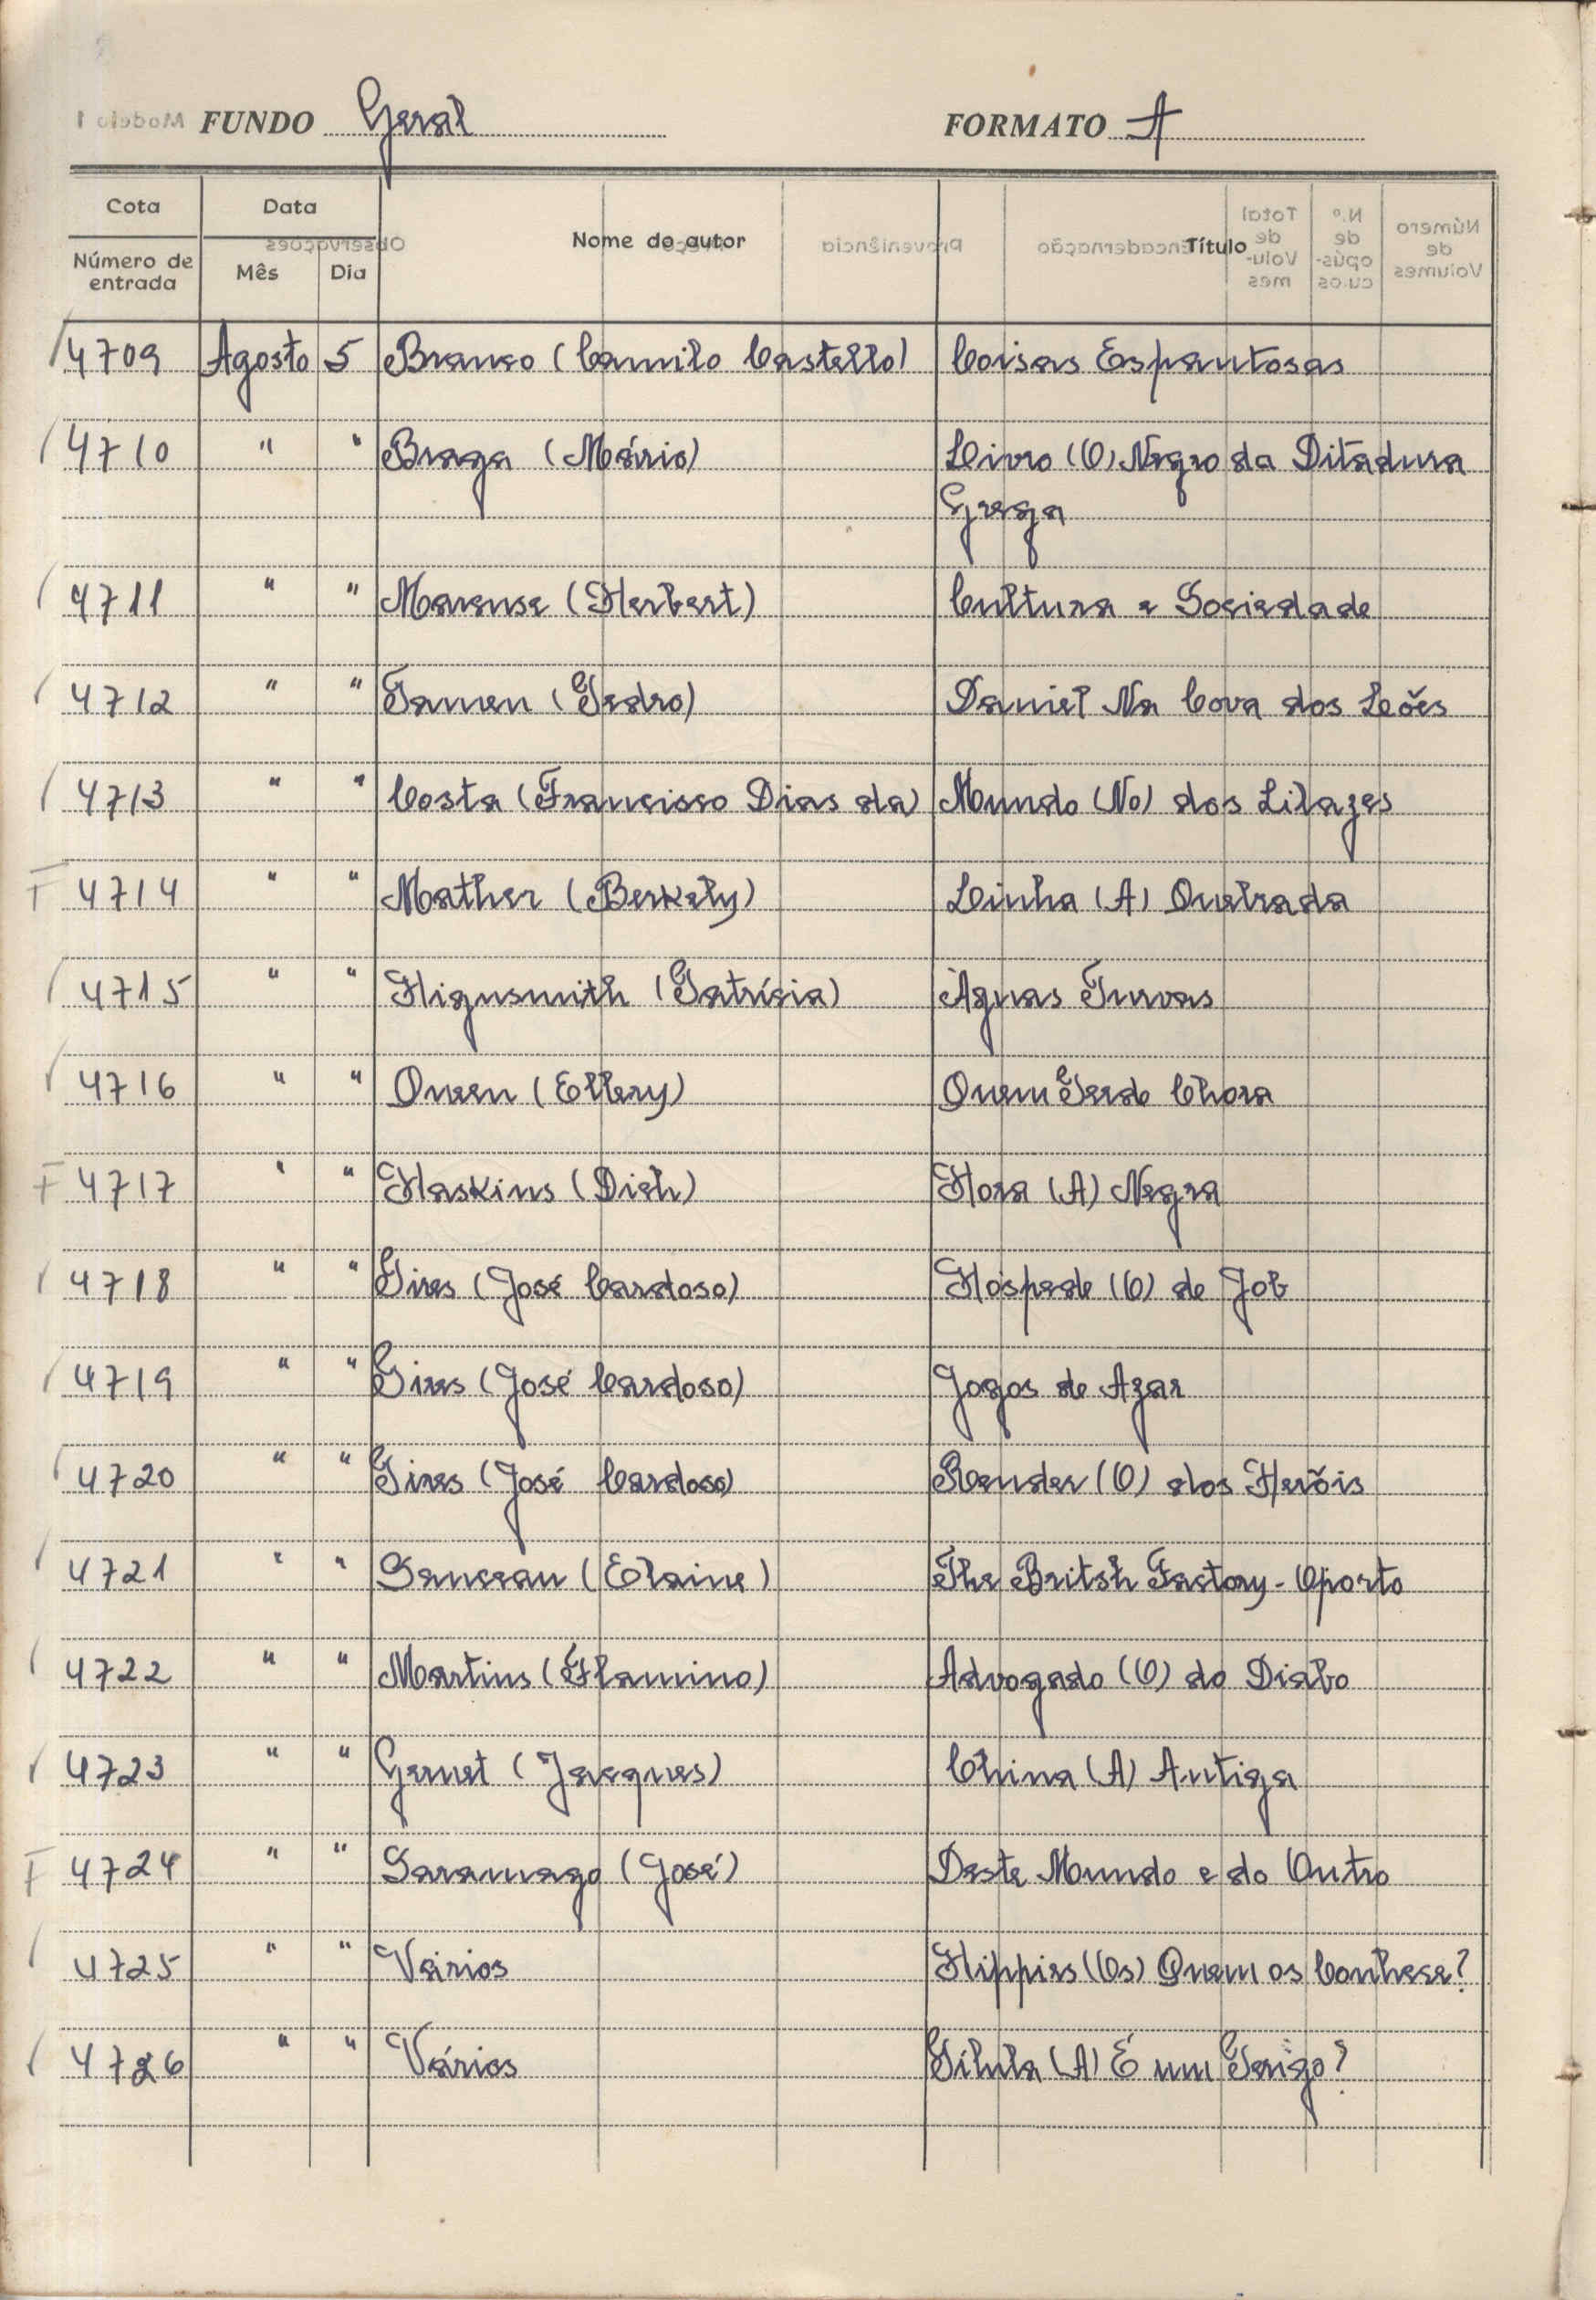 FUNDO Geral FORMATO A
Modelo 1
Cota Data Nome do autor Título
Número de entrada Mês Dia
Observações Preço Proveniência Encadernação Total de Volumes N.º de opúsculos Número de Volumes
4709 Agosto 5 Branco (Camilo Castello) Coisas Espantosas
4710 " " Braga (Mário) Livro (O) Negro da Ditadura
Grega
4711 " " Marcuse (Herbert) Cultura e Sociedade
4712 " " Tamen (Pedro) Daniel Na Cova dos Leões
4713 " " Costa (Francisco Dias da) Mundo (No) dos Lilazes
F 4714 " " Mather (Berkely) Linha (A) Quebrada
4715 " " Higusmith (Patrícia) Àguas Turvas
4716 " " Queen (Ellery) Quem Perde Chora
F 4717 " " Haskins (Dich) Hora (A) Negra
4718 " " Pires (José Cardoso) Hóspede (O) de Job
4719 " " Pires (José Cardoso) Jogos de Azar
4720 " " Pires (José Cardoso) Render (O) dos Heróis
4721 " " Sanceau (Elaine) The Britsh Factory - Oporto
4722 " " Martins (Flamino) Advogado (O) do Diabo
4723 " " Gernet (Jacques) China (A) Antiga
F 4724 " " Saramago (José) Deste Mundo e do Outro
4725 " " Vários Hippies (Os) Quem os Conhece?
4726 " " Vários Pílula (A) É um Perigo?